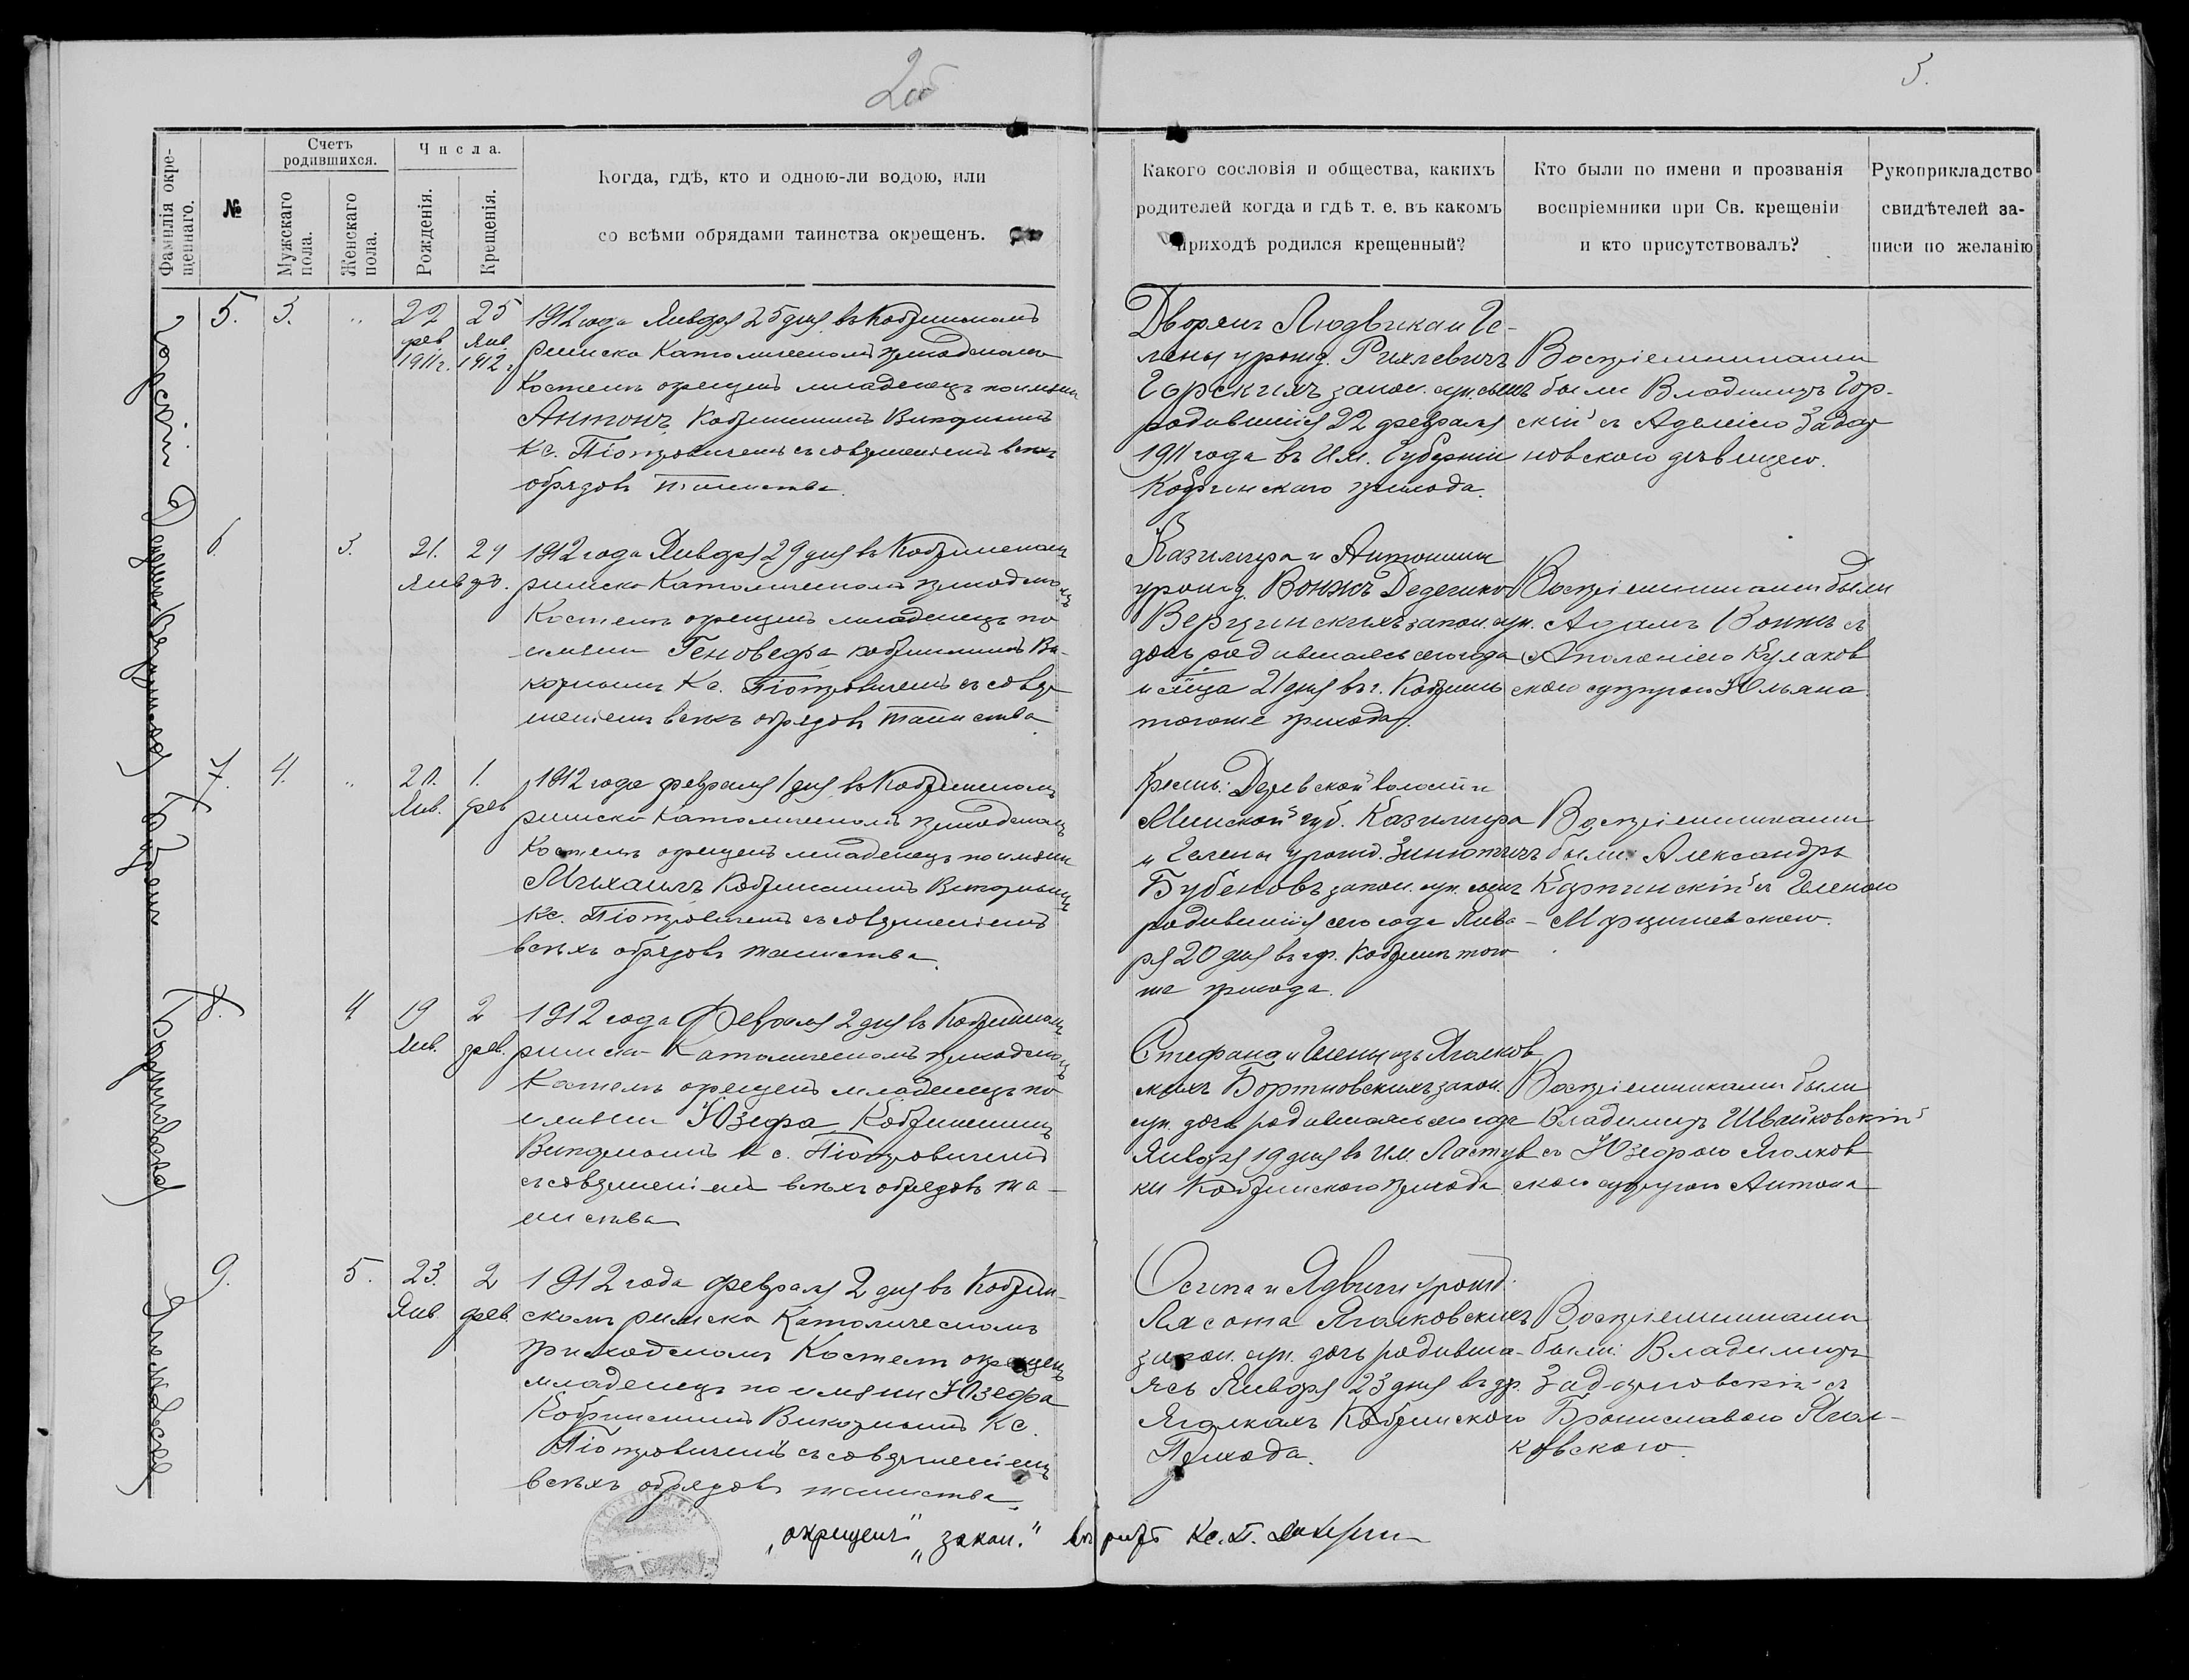 2об
3.
Фамилія окре-
щеннаго.
№
Счетъ
родившихся.
Мужскаго
пола.
Женскаго
пола.
Числа.
Рожденія.
Крещенія.
Когда, гдѣ, кто и одною-ли водою, или
со всѣми обрядами таинства окрещенъ.
Какого сословія и общества, какихъ
родителей когда и гдѣ т. е. въ какомъ
приходѣ родился крещенный?
Кто были по имени и прозванія
воспріемники при Св. крещеніи
и кто присутствовалъ?
Рукоприкладство
свидѣтелей за-
писи по желанію
Горскій
5.
3.
„
22
фев.
1911 г.
25
Янв.
1912 г.
1912 года Января 25 дня въ Кобринскомъ
римско Католическомъ приходскомъ
Костелѣ окрещенъ младенецъ по имени
Антонъ Кобринскимъ Викарнымъ
Кс. Піотровичемъ съ совершеніемъ всѣхъ
обрядовъ таинства.
Дворянъ Людвика и Ге-
лены урожд. Рихлевичъ
Горскихъ закон. суп. сынъ
родившійся 22 февраля
1911 года въ Им. Губерніи
Кобринскаго прихода.
Воспріемниками
были Владимиръ Гор-
скій съ Аделію Задар
новскою дѣвицею.
6.
3.
21.
29
Январ.
1912 года Января 29 дня въ Кобринскомъ
римско Католическомъ приходскомъ
Костелѣ окрещенъ младенецъ по
имени Геновефа Кобринскимъ Ви-
карнымъ Кс. Піотровичемъ съ совер
шеніемъ всѣхъ обрядовъ таинства
Казимира и Антонины
урожд. Вонжъ Дедегико
Верцинскихъ закон. суп.
дочь родившаяся сего года
мѣсяца 21 дня въ г. Кобринѣ
тогоже прихода.
Воспріемниками были
Адамъ Вонжъ съ
Аполоніею Кулаков
скою супругою Юльяна.
Бубенъ
7.
4.
„
20.
Янв.
1.
фев
1912 года февраля 1 дня въ Кобринскомъ
римско Католическомъ приходскомъ
Костелѣ окрещенъ младенецъ по имени
Михаилъ Кобринскимъ Викарнымъ
Кс. Піотровичемъ съ совершеніемъ
всѣхъ обрядовъ таинства.
Крестьян: Деревской волости
Минской губ. Казимира
и Гелены урожд. Зинютичъ
Бубеновъ закон. суп. сынъ
родившійся сего года Янва-
ря 20 дня въ гор. Кобринѣ того
же прихода.
Воспріемниками
были: Александръ
Карпинскій съ Геленою
Марцишевскою.
Бортновская
8.
4
19
Янв.
2
фев.
1912 года Февраля 2 дня въ Кобринскомъ
римско Католическомъ приходскомъ
Костелѣ окрещенъ младенецъ по
имени Юзефа Кобринскимъ
Викарнымъ Кс. Піотровичемъ
съ совершеніемъ всѣхъ обрядовъ та-
инства
Стефана и Гелены изъ Яголков
скихъ Бортновскихъ закон.
суп. дочь родившаяся сего года
Января 19 дня въ Им. Ластув
ки Кобринскаго прихода
Воспріемниками были
Владимиръ Швайковскій
съ Юзефою Яголков
скою супругою Антона
Яголковская
9.
5.
23.
Янв
2
фев.
1912 года февраля 2 дня въ Кобрин-
скомъ римско Католическомъ
приходскомъ Костелѣ окрещенъ
младенецъ по имени Юзефа
Кобринскимъ Викарнымъ Кс.
Піотровичемъ съ совершеніемъ
всѣхъ обрядовъ таинства.
Осипа и Ядвиги урожд.
Лясота Яголковскихъ
закон. суп. дочь родивша-
яся Января 23 дня въ др.
Яголкахъ Кобринскаго
Прихода.
Воспріемниками
были: Владимиръ
Задарновскій съ
Брониславою Ягол-
ковскою.
„окрещенъ" „закон."